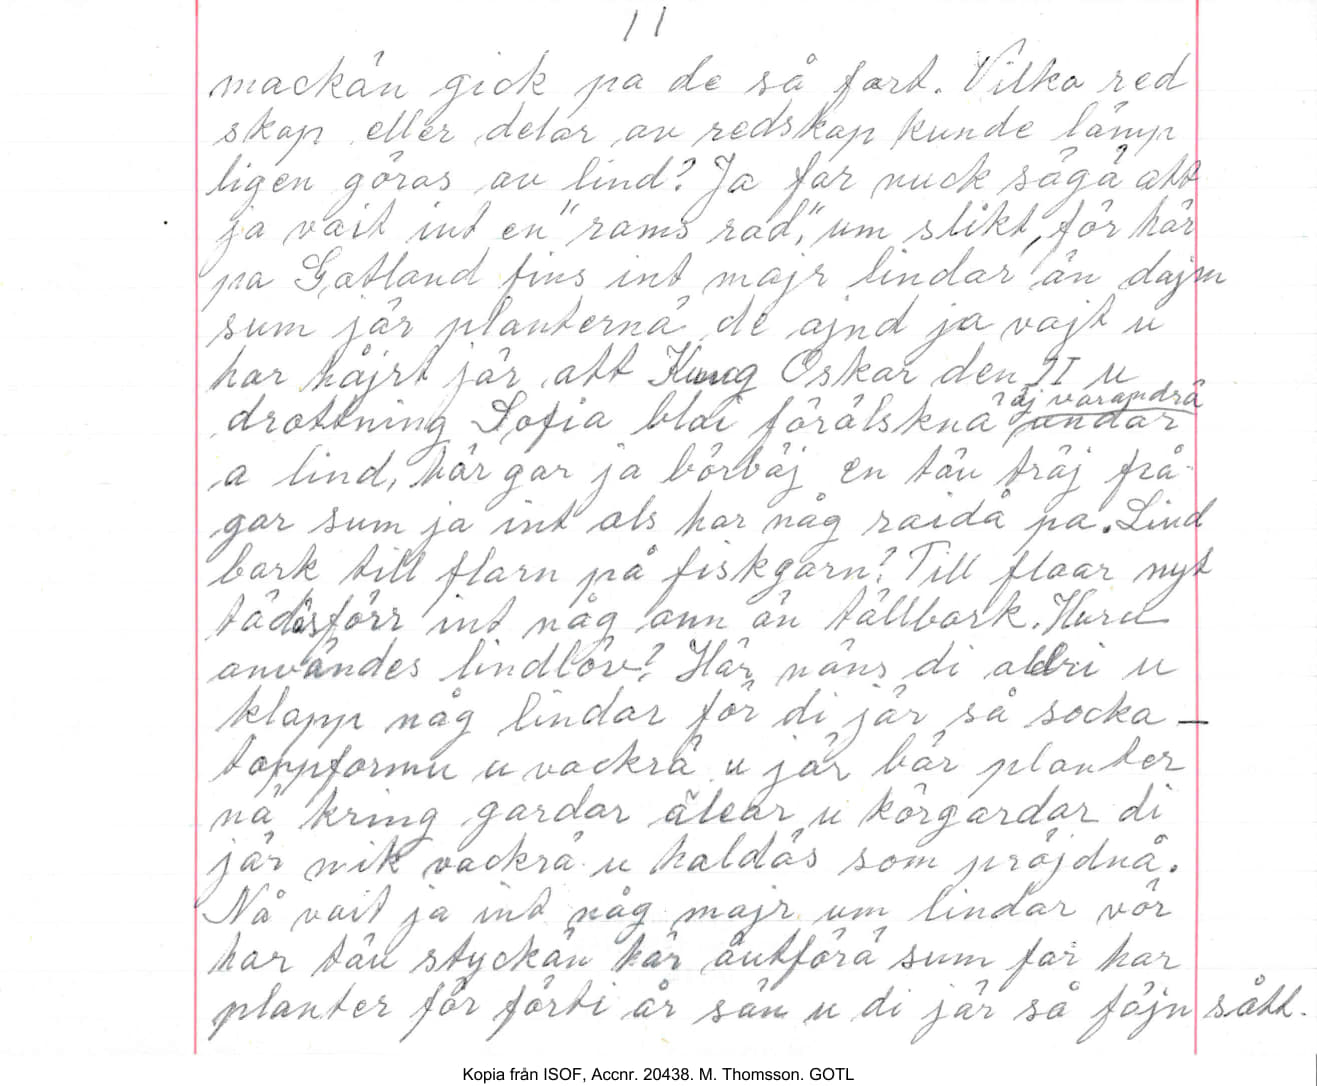 11
mackän gick pa de så fort. Vilka red
skap eller delar av redskap kunde lämp
ligen göras av lind? Ja far nuck sägä att
ja vait int en "rams rad", um slikt, för här
pa Gotland fins int majr lindar än dajm
sum jär planternä de ajnd ja vajt u
har håjrt jär att Kung Oskar den II u
äj varandrä
drottning Sofia blai förälsknä undar
a lind, här gar ja börbäj en täu träj frå-
gar sum ja int als har någ raidå pa. Lind
bark till flarn på fiskgarn? Till flaar nyt
tädäsförr int någ ann än tällbark. Huru
användes lindlöv? Här näns di aldri u
klapp någ lindar för di jär så socka-
toppformu u vackrä u jär bär planter
nä kring gardar älear u körgardar di
jär nik vackrä u haldäs som pröjdnå.
Nå vait ja int någ majr um lindar vör
har täu styckän här äutförä sum far har
planter för förti år sän u di jär så föjn sått.
Kopia från ISOF, Accnr. 20438. M. Thomsson. GOTL